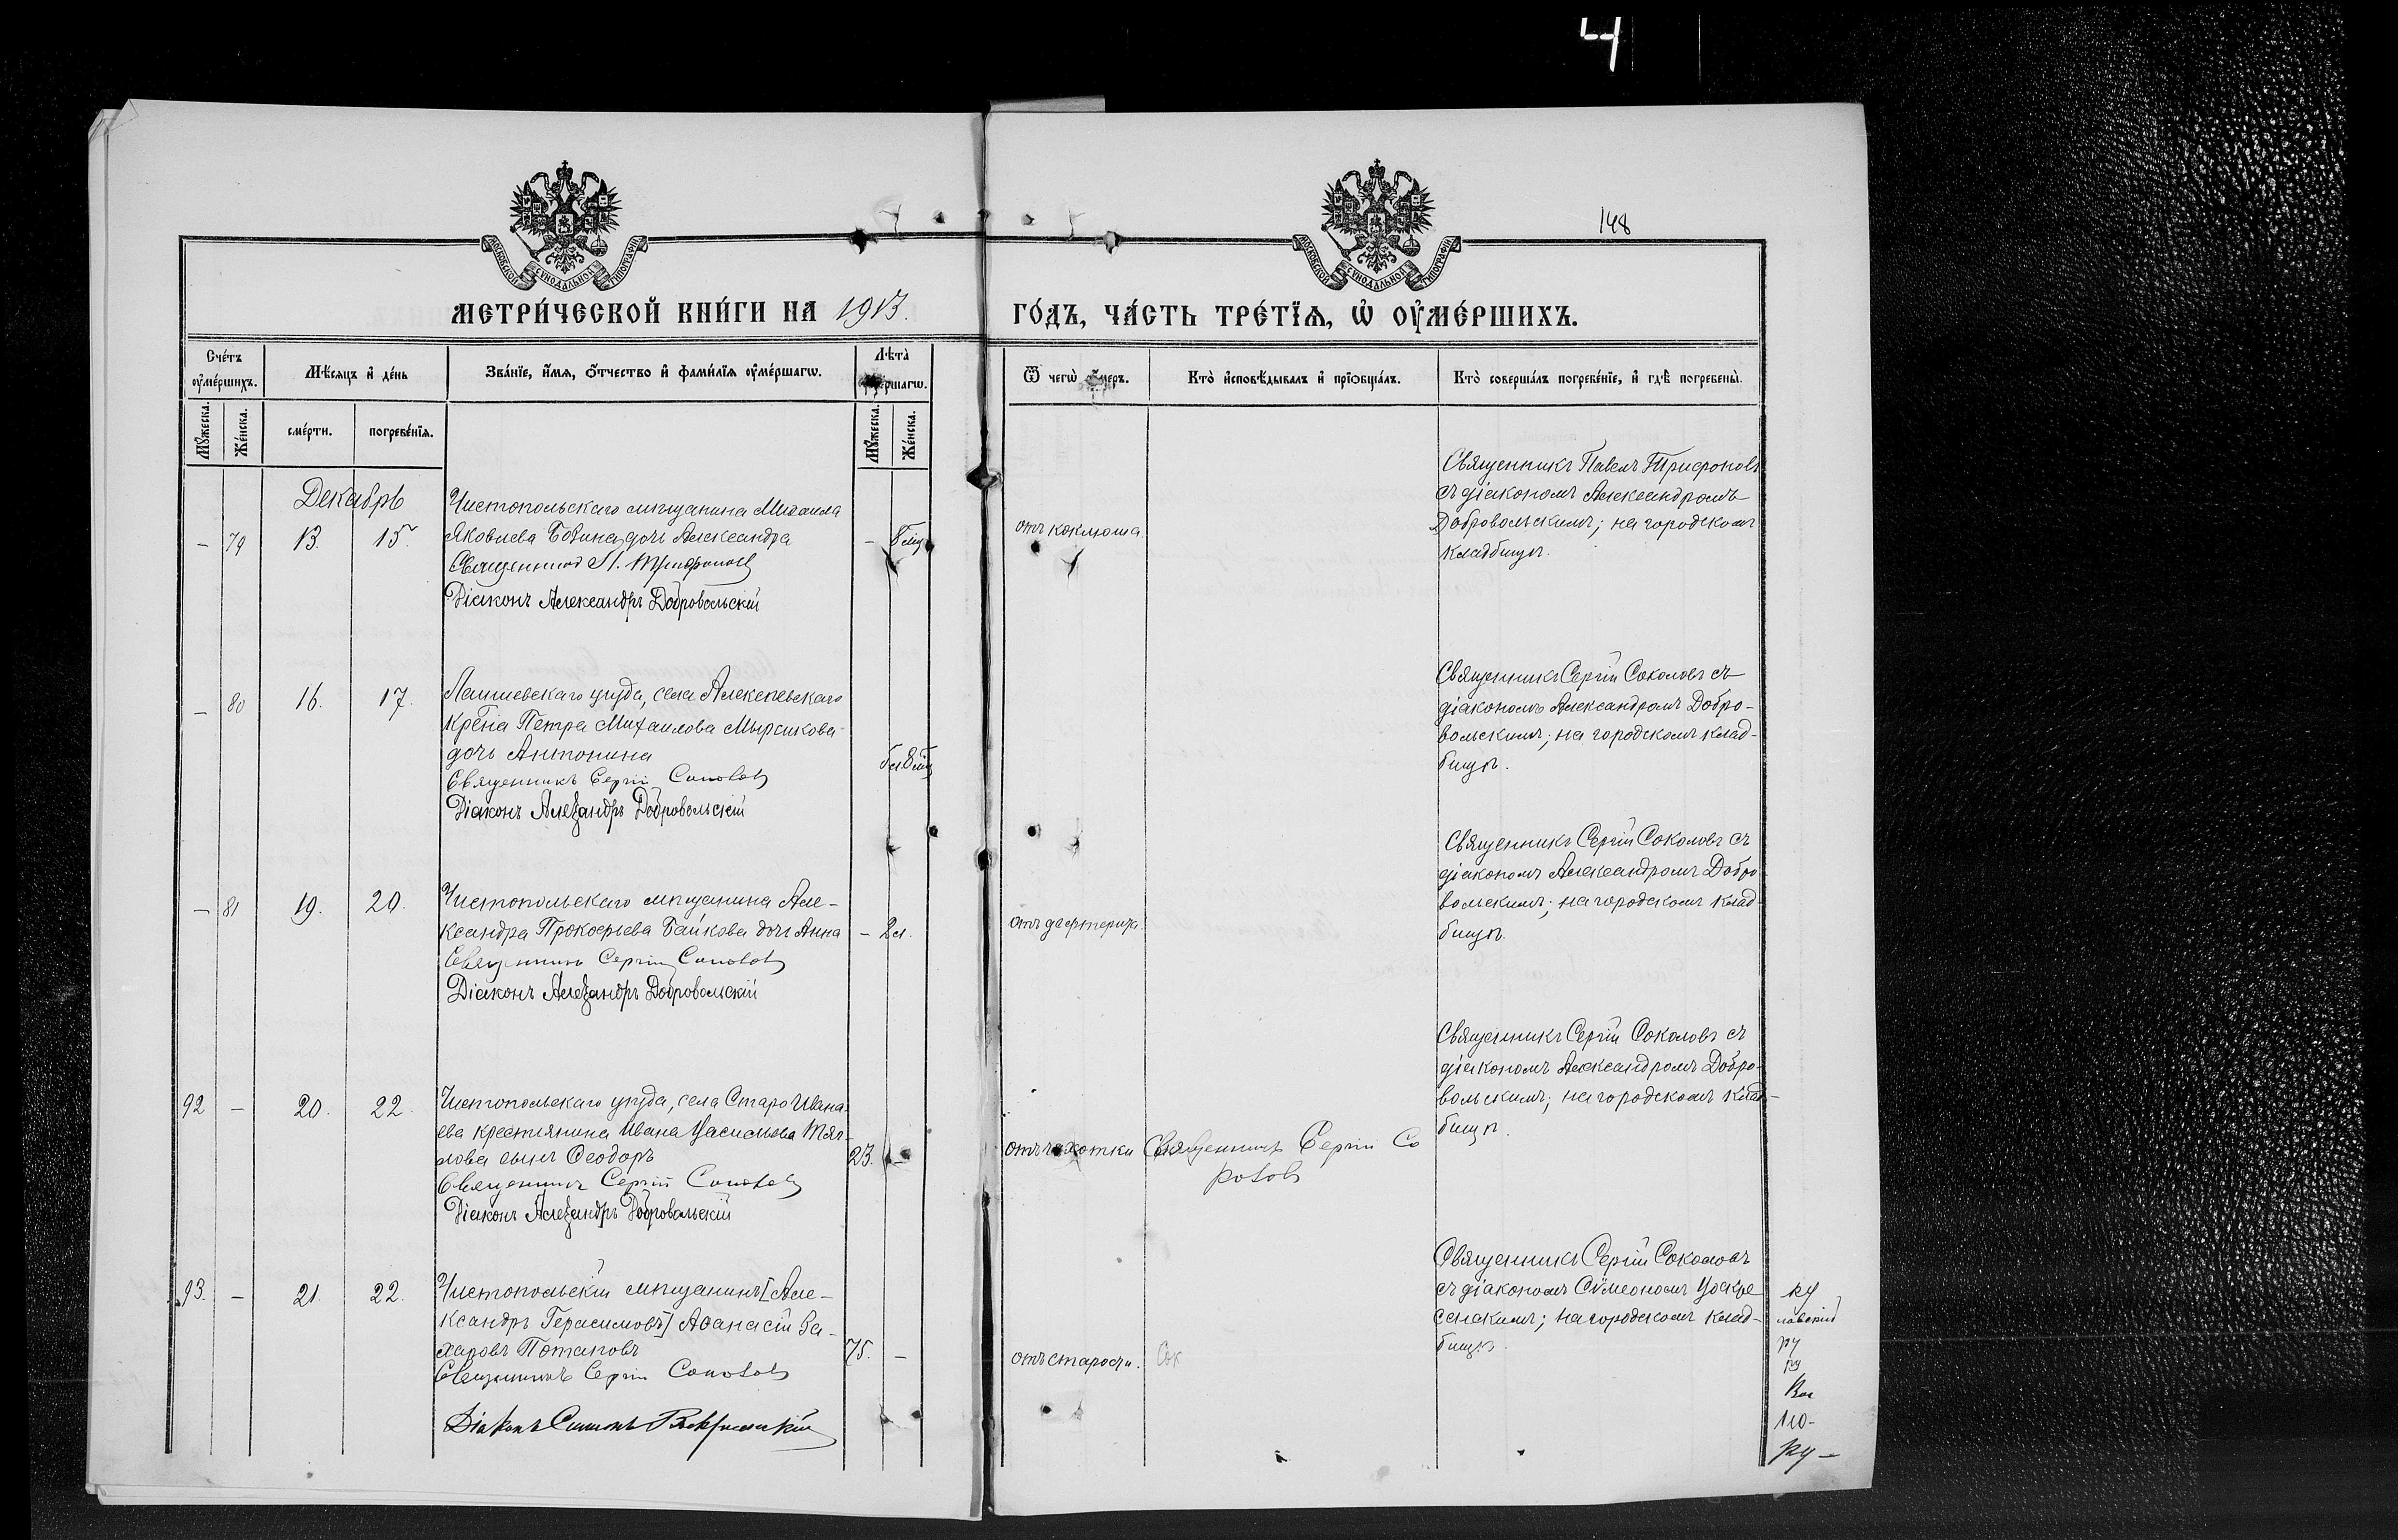 4
148
МОСКОВСКОЙ СѴНОДАЛЬНОЙ ТИПОГРАФІИ
МОСКОВСКОЙ СѴНОДАЛЬНОЙ ТИПОГРАФІИ
МЕТРИ́ЧЕСКОЙ КНИ́ГИ НА 1913. ГО́ДЪ, ЧА́СТЬ ТРЕ́ТЇѦ, Ѡ҆ ОУ҆МЕ́РШИХЪ.
Сче́тъ оу҆ме́ршихъ.
Мꙋ́жеска.
Же́нска.
Мѣ́сяцъ и҆ де́нь
сме́рти.
погребе́нїя.
Зва́нїе, и҆́мя, ѻ҆́тчество и҆ фами́лїя оу҆ме́ршагѡ.
Лѣта̀ оу҆ме́ршагѡ.
Мꙋ́жеска.
Же́нска.
Ѿ чегѡ̀ оу҆́меръ.
Кто̀ и҆сповѣ́дывалъ и҆ прїѻбща́лъ.
Кто̀ соверша́лъ погребе́нїе, и҆ гдѣ̀ погребены̀.
Декабрь
- 79 13. 15
Чистопольскаго мѣщанина Михаила
Яковлева дочь Александра
Священникъ П. Трифоновъ
Діаконъ Александръ Добровольскій
-
отъ коклюша
Священникъ Павелъ Трифоновъ
съ діакономъ Александромъ
Добровольскимъ; на городскомъ
кладбищѣ.
- 80 16. 17.
Лаишевскаго уѣзда, села Алексѣевскаго
Петра Михаилова
дочь Антонина
Священникъ Сергій Соколовъ
Діаконъ Александръ Добровольскій
Священникъ Сергій Соколовъ съ
діакономъ Александромъ Добро-
вольскимъ; на городскомъ клад-
бищѣ.
- 81 19. 20.
Чистопольскаго мѣщанина Але-
ксандра Прокофьева Байкова дочь Анна
Священникъ Сергій Соколовъ
Діаконъ Александръ Добровольскій
- 2л.
отъ дефтерита
Священникъ Сергій Соколовъ съ
діакономъ Александромъ Добро
вольскимъ; на городскомъ клад-
бищѣ.
92 - 20. 22.
Чистопольскаго уѣзда, села Старо Ивана-
ева крестьянина Ивана Васильева
сынъ Ѳеодоръ
Священникъ Сергій Соколовъ
Діаконъ Александръ Добровольскій
23. -
отъ чахотки
Священникъ Сергій Со
коловъ
Священникъ Сергій Соколовъ съ
діакономъ Александромъ Добро-
вольскимъ; на городскомъ клад-
бищѣ.
93. - 21. 22.
Чистопольскій мѣщанинъ [Але-
ксандръ Герасимовъ] Аѳанасій За-
харовъ Потаповъ
Священникъ Сергій Соколовъ
Діаконъ
75. -
отъ старости.
Сок
Священникъ Сергій Соколовъ
съ діакономъ Сѵмеономъ Воскре
сенскимъ; на городскомъ клад-
бищѣ.